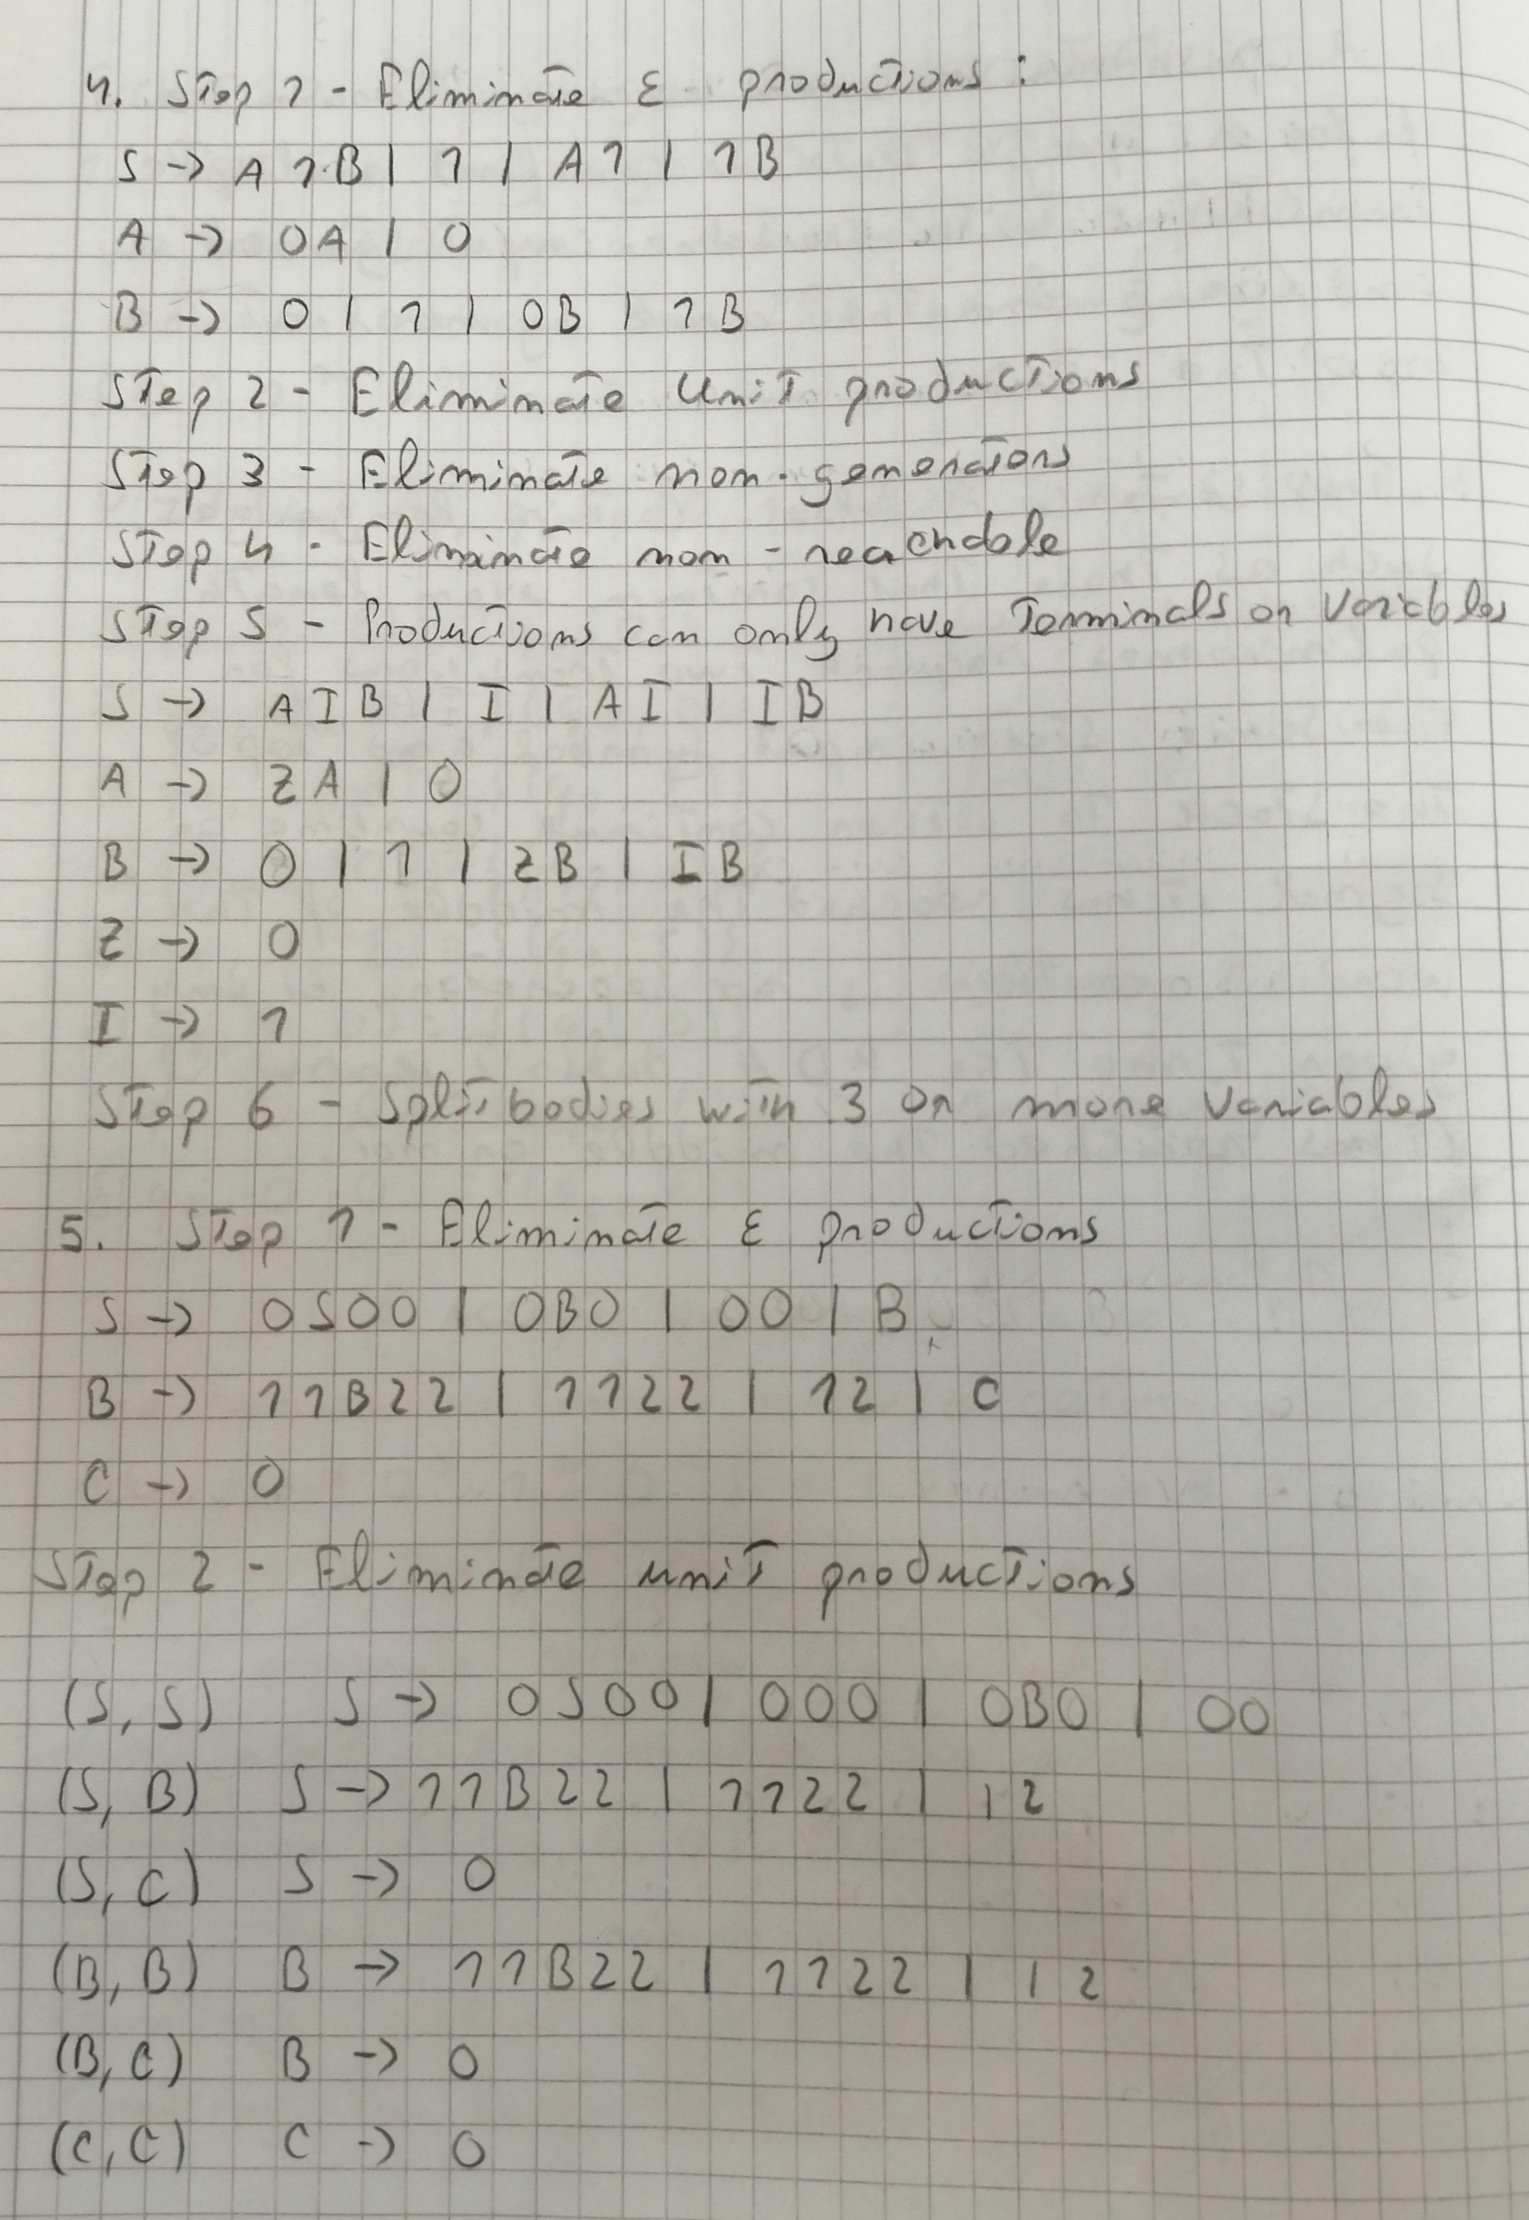 4. Step 1 - Eliminate ε productions:
S → A1B | 1 | A1 | 1B
A → 0A | 0
B → 0 | 1 | 0B | 1B
Step 2 - Eliminate unit productions
Step 3 - Eliminate non-generators
Step 4 - Eliminate non-reachable
Step 5 - Productions can only have Terminals or variables
S → AIB | I | AI | IB
A → ZA | 0
B → 0 | 1 | ZB | IB
Z → 0
I → 1
Step 6 - Split bodies with 3 or more variables
5. Step 1 - Eliminate ε productions
S → 0S00 | 0B0 | 00 | B
B → 11B22 | 1122 | 12 | C
C → 0
Step 2 - Eliminate unit productions
(S, S) S → 0S00 | 000 | 0B0 | 00
(S, B) S → 11B22 | 1122 | 12
(S, C) S → 0
(B, B) B → 11B22 | 1122 | 12
(B, C) B → 0
(C, C) C → 0